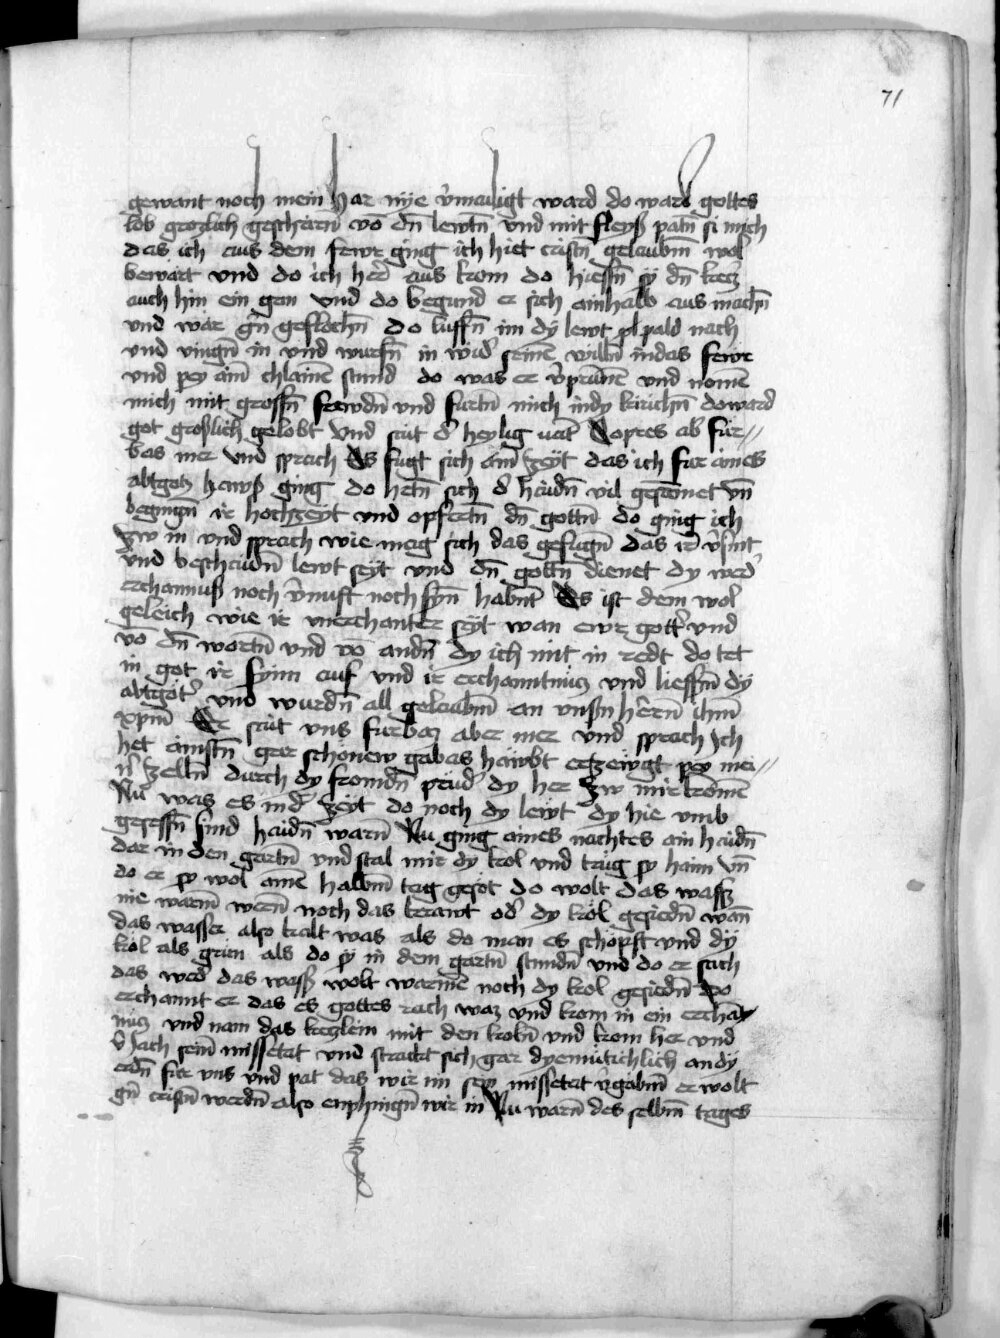 71
gewant noch mein har nÿe v̄mailigt ward do ward gottes
lob grozlich geschriern vō dn̄ lewtn̄ vnd mit fleyß patn̄ si mich
das ich aus dem fewr ging ich hiet cristn̄ gelaubm̄ wol
bewärt vnd do ich her aus krom do hiessn̄ sy dn̄
auch hin ein gen vnd do begund er sich ainhalb aus machn̄
vnd wär gn̄ geflochn̄ do luffn̄ im dÿ lewt pald nach
vnd vingn̄ in vnd wurfn̄ in wid' seinē willn̄ indas fewr
vnd pey ainē chlainē stund do was er v̄prūnē vnd nomē
mich mit grossn̄ frewdn̄ vnd furtn̄ mich indy kirichn̄ doward
got groslich gelobt Vnd sait d' heylig vat' Copres ab' für
bas mer vnd sprach Es fugt sich aim̄ zeÿt das ich fur aines
abtgotz hawß ging do hetn̄ sich d' haidn̄ vil gesamet vn̄
begingn̄ ir hochzeyt vnd opfertn̄ dn̄ gottn̄ do ging ich
zw in vnd sprach wie mag sich das gefugn̄ das ir v̄sint
vnd beschaidn̄ lewt seÿt vnd dn̄ gottn̄ dienet dy wed'
erchantnuß noch v̄nuft noch syn̄ habnt Es ist dem wol
geleich wie ir vnerchanter seÿt wan ewr gott' vnd
vo dn̄ wortn̄ vnd vō andn̄ dy ich mit in redt do tet
in got ir synn auf vnd ir erchanntnuz vnd liessn̄ dy
abtgöt' vnd wurdn̄ all gelaubm̄ an vnsn̄ hern̄ ihm̄
xpm̄ Er sait vns furbaz aber mer vnd sprach Ich
het ainstn̄ gar schönew gabas hawbt erzewgt pey mei
n' zelln̄ durch dy fromdn̄ prüd' dy her zw mir kömē
Nu waz es ind' zeÿt do noch dy lewt dy hie vmb
gesessn̄ sind haidn̄ warn̄ Nu ging aines nachtes ain haidn̄
dar in den gartn̄ vnd stal mir dy kol vnd trug sy haim vn̄
do er sy wol ainē halbm̄ tag gesöt do wolt das wass'
nie warm̄ wern̄ noch das krawt od' dy kol gesiedn̄ wan̄
das wasser also kalt was als do man es schöpft vnd dÿ
köl als grün als do sÿ in dem gartn̄ stundn̄ vnd do er sach
das wed' das wass' wolt warmē noch dy kol gesiedn̄ Do
erchannt er das es gottes rach waz vnd krom in ein erchāt
nuz vnd nam das kezzlein mit den kröln̄ vnd krom her vnd
v̄iach sein̄ missetat vnd strackt sich gar dyemütichlich an dÿ
erdn̄ fur vns vnd pat das wir im sein missetat v̄gabm̄ er wolt
gn̄ cristn̄ werdn̄ also enphingn̄ wir in Nu warn̄ des selbm̄ tages